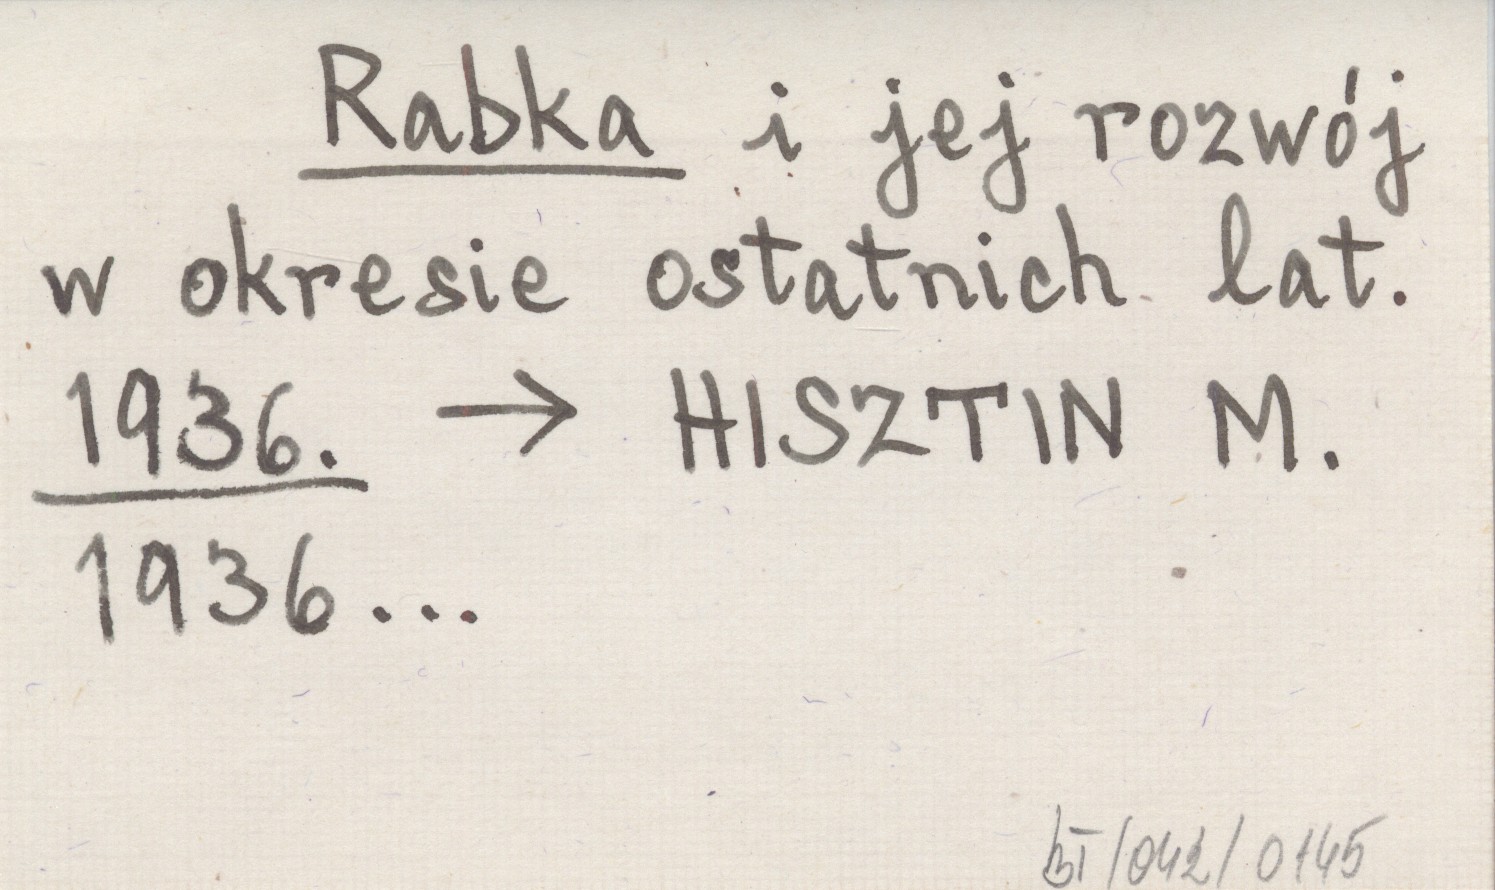 Rabka i jej rozwój
w okresie ostatnich lat.
1936. → HISZTIN M.
1936...
/042/0145